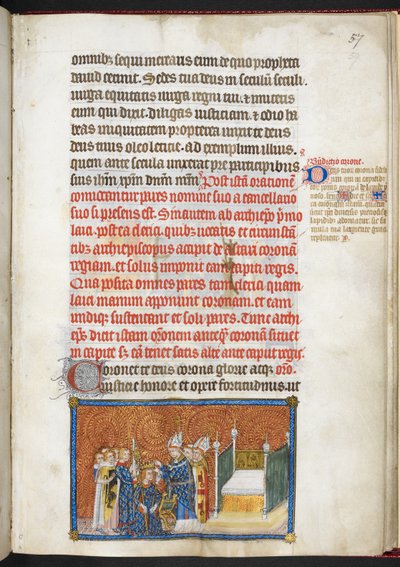 57
omnibus sequi mereatis eum de quo propheta
dauid cecinit. Sedes tua deus in seculum seculi
uirga equitatis uirga regni tui. & imitetis
eum qui dixit. diligas iusticiam. & odio ha
beas iniquitatem propterea unxit te deus
deus tuus oleo leticie. ad exemplum illius.
quem ante secula unxerat pre participibus
suis ihm xpm dnm nrm. Post istam orationem
conuocantur pares nomine suo a cancellario
suo si presens est. Sin autem ab archiepo primo
laici. postea clerici. quibus uocatis et circunstan
tibus archiepiscopus accipit de altari coronam
regiam. et solus imponit eam capiti regis.
Qua posita omnes pares tam clerici quam
laici manum apponunt corone. et eam
undique sustentant et soli pares. Tunc archi
eps dicit istam oronem anteqm coronam situet
in capite sz eam tenet satis alte ante caput regis.
Coronet te deus corona glorie atqz oro.
iusticie honore et opere fortitudinis. ut
Deus tuor corona fide